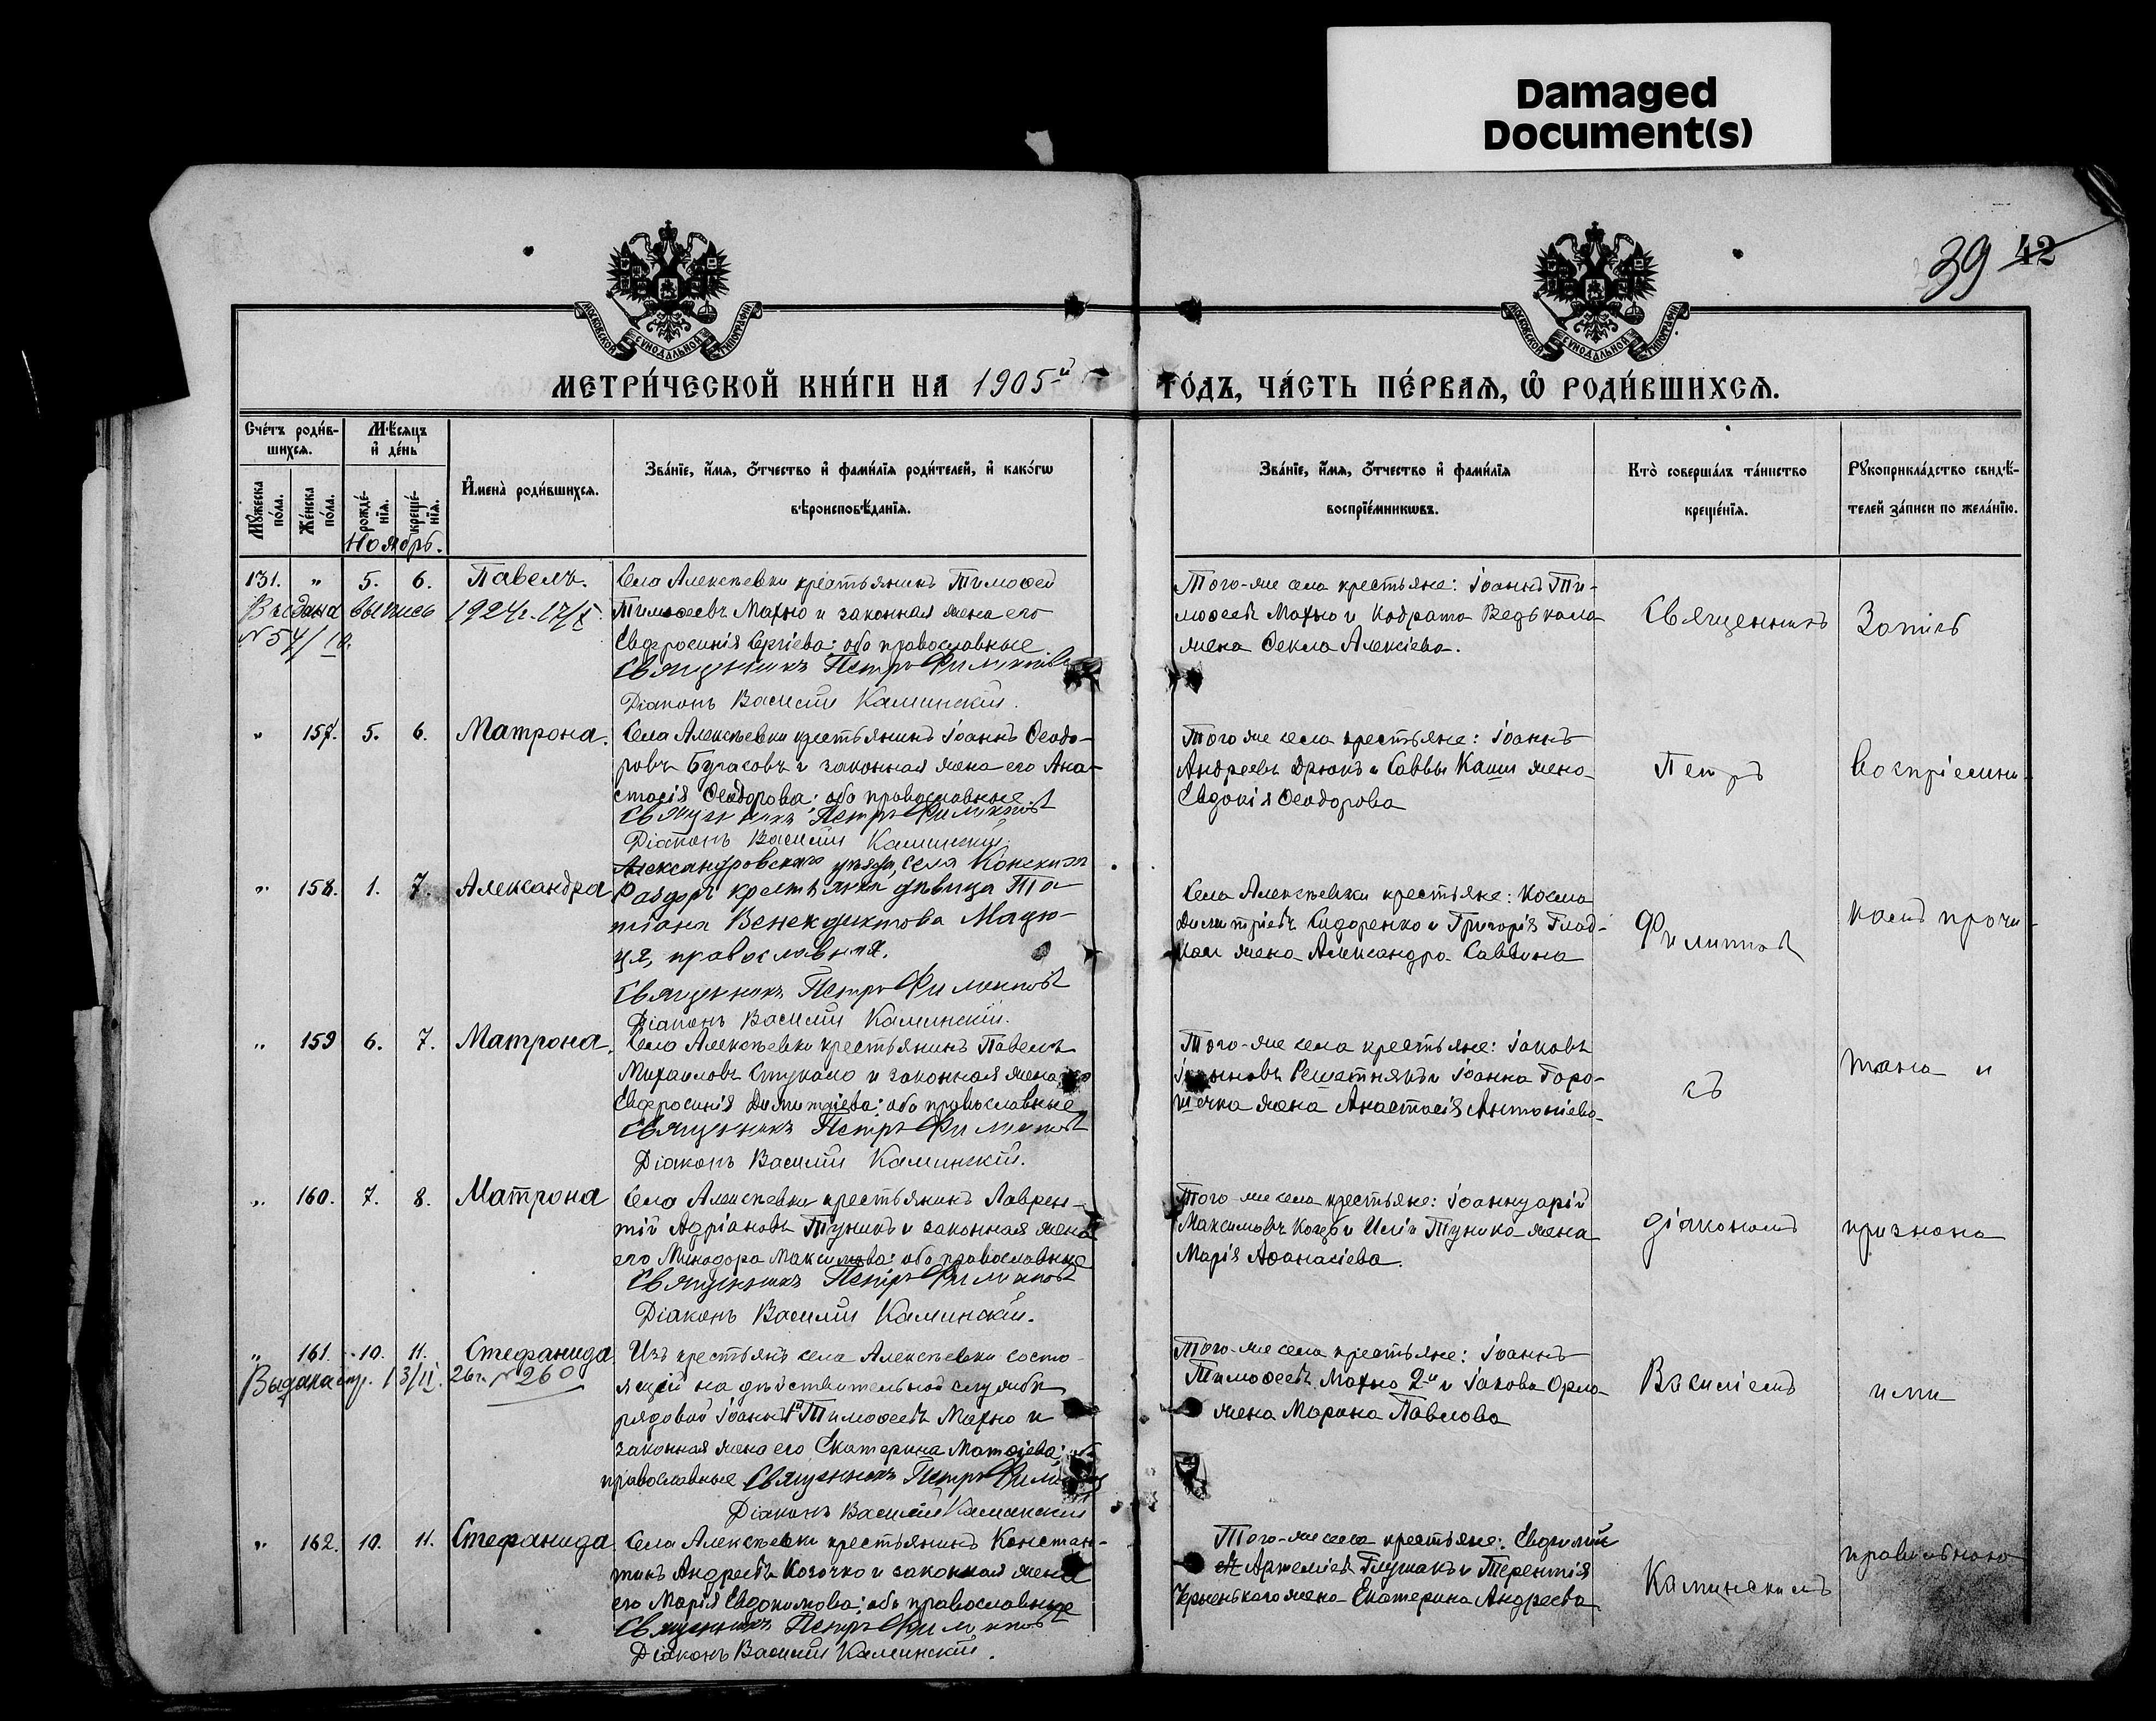 Damaged
Document(s)
39 42
МОСКОВСКОЙ СѴНОДАЛЬНОЙ ТИПОГРАФІИ
МОСКОВСКОЙ СѴНОДАЛЬНОЙ ТИПОГРАФІИ
МЕТРИ́ЧЕСКОЙ КНИ́ГИ НА 1905-й ГО́ДЪ, ЧА́СТЬ ПЕ́РВАѦ, Ѡ҆ РОДИ́ВШИХСѦ.
Сче́тъ роди́в-
шихсѧ.
Мꙋ́жеска по́ла.
Же́нска по́ла.
Мѣ́сѧцъ и҆ де́нь
рожде́-нїѧ.
креще́-нїѧ.
Ноябрь.
И҆мена̀ роди́вшихсѧ.
Зва́нїе, и҆́мѧ, ѻ҆́тчество и҆ фами́лїѧ роди́телей, и҆ како́гѡ
вѣроисповѣ́данїѧ.
Зва́нїе, и҆́мѧ, ѻ҆́тчество и҆ фами́лїѧ
воспрїе́мникѡвъ.
Кто̀ соверша́лъ та́инство
креще́нїѧ.
Рꙋкоприкла́дство свидѣ́-
телей за́писи по жела́нїю.
131. " 5. 6. Павелъ.
Выдана выпись 1924г. 17/X.
№ 54/
Села Алексѣевки крестьянинъ Тимоѳей
Тимоѳеевъ Махно и законная жена его
Евфросинія Сергіева; оба православные.
Священникъ Петръ Филипповъ
Діаконъ Василій Каминскій.
Того-же села крестьяне: Іоаннъ Ти-
моѳеевъ Махно и Кодрата
жена Ѳекла Алексіева.
Священникъ
Запись
" 157. 5. 6. Матрона.
Села Алексѣевки крестьянинъ Іоаннъ Ѳеодо-
ровъ Бугасовъ и законная жена его Ана-
стасія Ѳеодорова; оба православные.
Священникъ Петръ Филипповъ
Діаконъ Василій Каминскій.
Того же села крестьяне: Іоаннъ
Андреевъ Дрюкъ и Саввы Каши жена
Евдокія Ѳеодорова
Петръ
воспріемни-
" 158. 1. 7. Александра
Александровскаго уѣзда, села Конскихъ
Раздоръ крестьянка дѣвица Та-
тіана Венедиктова Мацю-
ця, православная.
Священникъ Петръ Филипповъ
Діаконъ Василій Каминскій.
Села Алексѣевки крестьяне: Косма
Димитріевъ Сидоренко и Григорія Глад-
каго жена Александра Саввина
Филипповъ
камъ прочи-
" 159 6. 7. Матрона.
Села Алексѣевки крестьянинъ Павелъ
Михаиловъ Стукало и законная жена его
Евфросинія Димитріева; оба православные
Священникъ Петръ Филипповъ
Діаконъ Василій Каминскій.
Того-же села крестьяне: Іаковъ
Решетнякъ и Іоанна Горо-
шечка жена Анастасія Антоніева
съ
тана и
" 160. 7. 8. Матрона
Села Алексѣевки крестьянинъ Лаврен-
тій Адріановъ Тушикъ и законная жена
его Минодора Максимова; оба православные
Священникъ Петръ Филипповъ
Діаконъ Василій Каминскій.
Того-же села крестьяне: Іоаннуарій
Максимовъ Коцуб и Иліи Тушика жена
Марія Аѳанасіева.
діакономъ
признана
" 161. 10. 11. Стефанида
Выдана спр. 13/II. 26г. № 260
Изъ крестьянъ села Алексѣевки состо-
ящій на дѣйствительной службѣ
рядовой Іоаннъ Тимоѳеевъ Махно и
законная жена его Екатерина Матѳіева;
православные Священникъ Петръ Филипповъ
Діаконъ Василій Каминскій
Того-же села крестьяне: Іоаннъ
Тимоѳеевъ Махно 2-й и Іакова Орла
жена Марина Павлова
Василіемъ
ими
" 162. 10. 11. Стефанида
Села Алексѣевки крестьянинъ Констан-
тинъ Андреевъ Козочка и законная жена
его Марія Евдокимова; оба православные
Священникъ Петръ Филипповъ
Діаконъ Василій Каминскій.
Того-же села крестьяне: Евфимій
Артеміевъ Глушакъ и Терентія
Черненькаго жена Екатерина Андреева
Каминскимъ
правильною